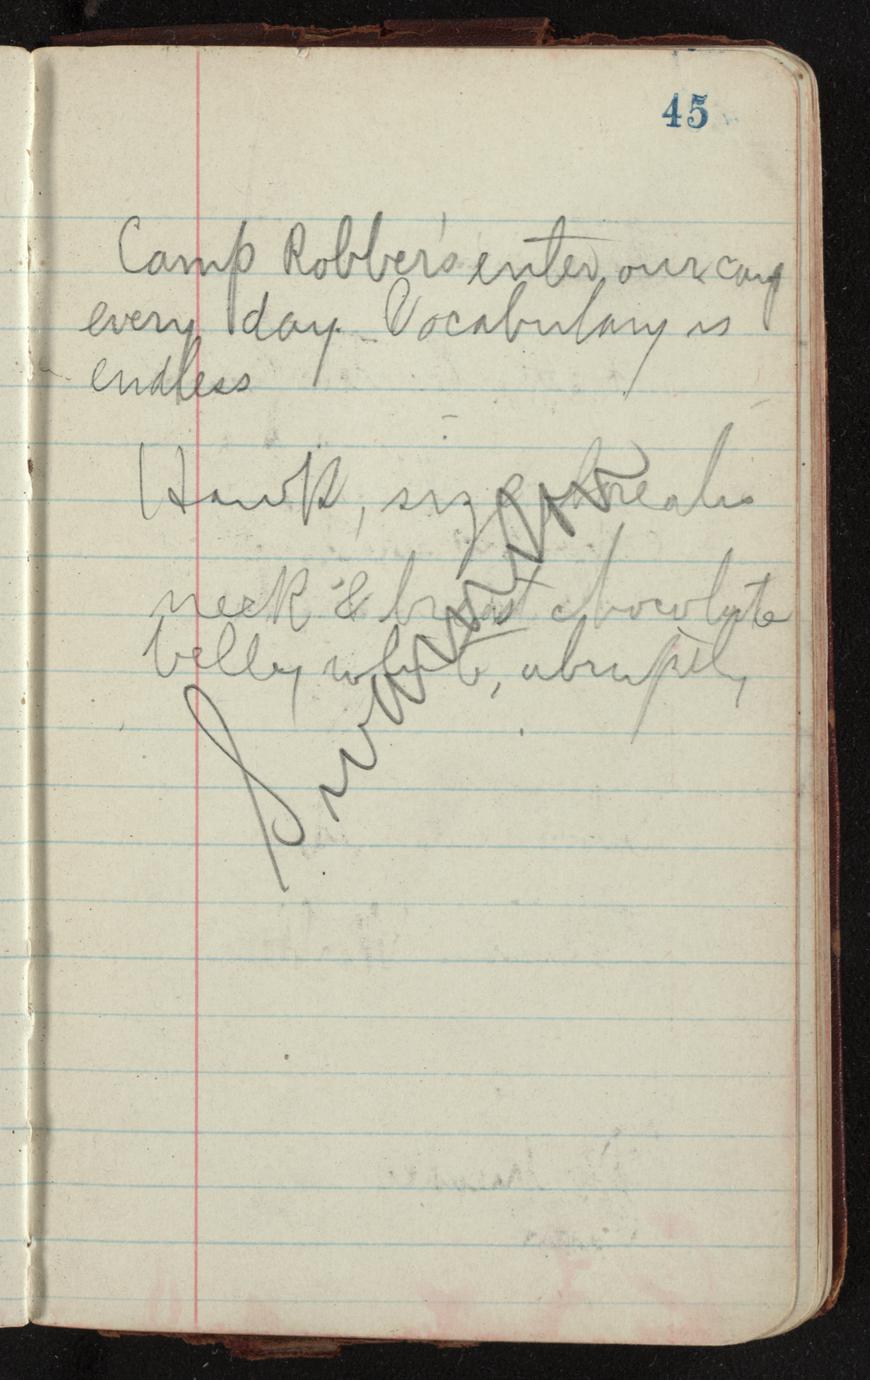 45
Camp Robber's enter our camp
every day. Vocabulary is
endless
Hawk, size borealis
neck & breast chocolate
belly white, abruptly
Swainson